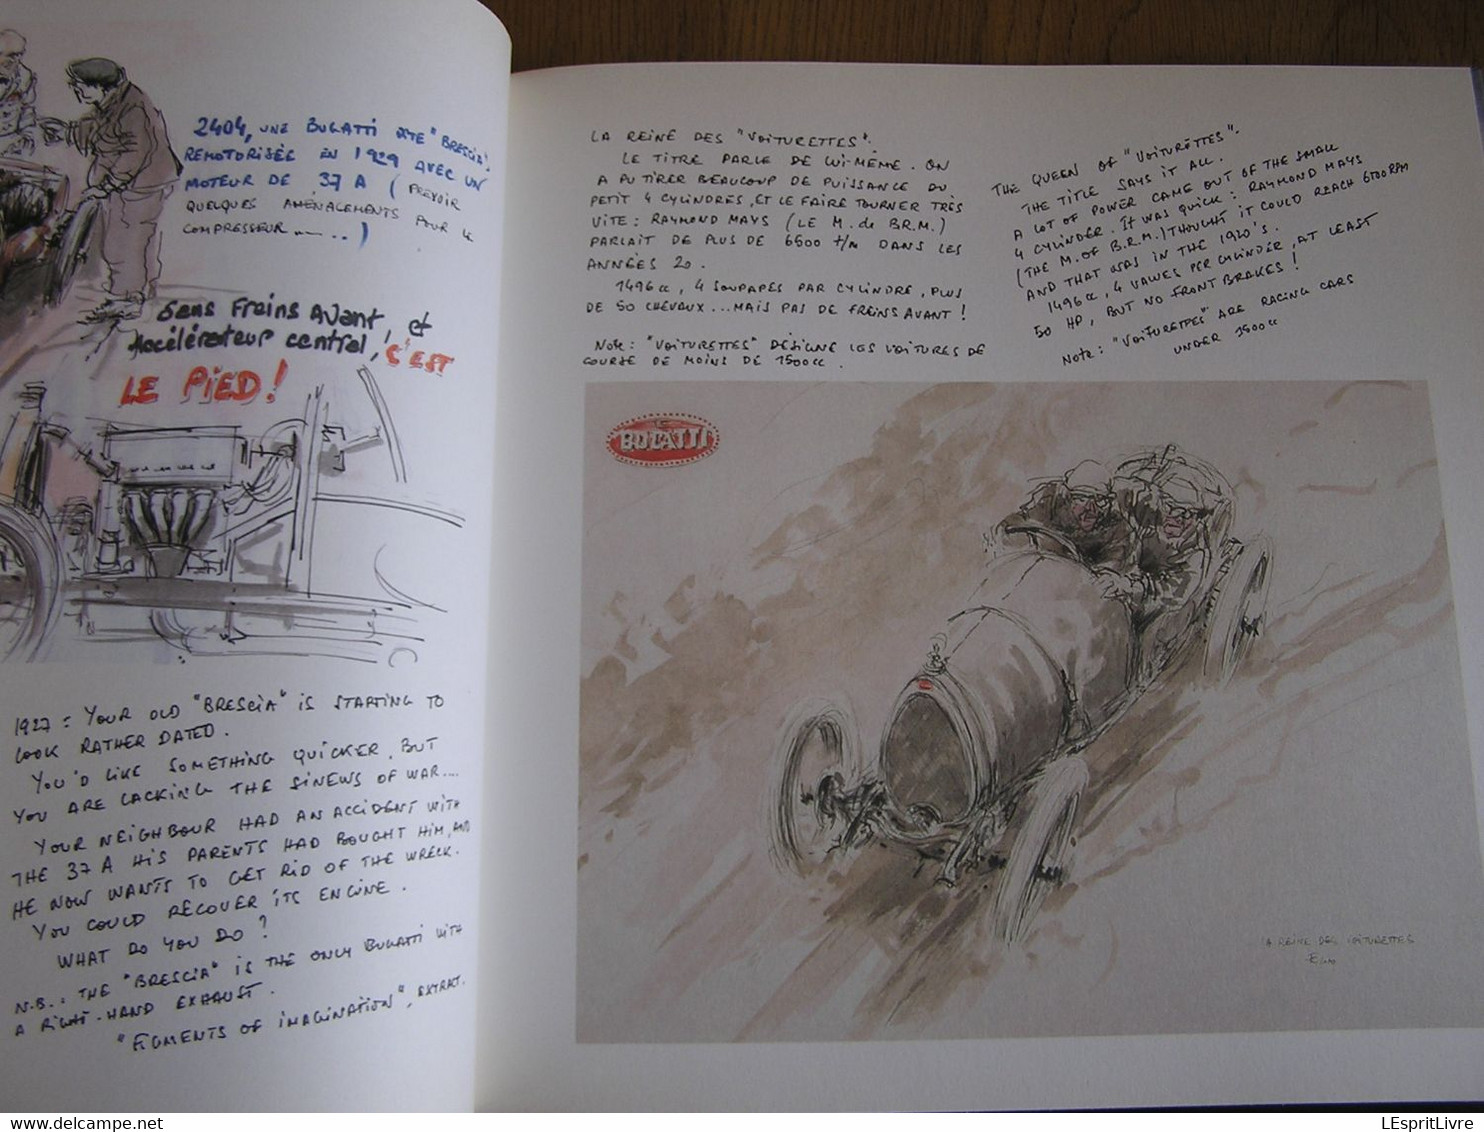 2404, UNE BUGATTI DITE "BRESCIA",
REMOTORISÉE EN 1929 AVEC UN
MOTEUR DE 37 A (PRÉVOIR
QUELQUES AMÉNAGEMENTS POUR LE
COMPRESSEUR......)
Sans Freins Avant, et
Accélérateur central, C'EST
LE PIED !
1927 : YOUR OLD "BRESCIA" IS STARTING TO
LOOK RATHER DATED.
YOU'D LIKE SOMETHING QUICKER. BUT
YOU ARE LACKING THE SINEWS OF WAR....
YOUR NEIGHBOUR HAD AN ACCIDENT WITH
THE 37 A HIS PARENTS HAD BOUGHT HIM, AND
HE NOW WANTS TO GET RID OF THE WRECK.
YOU COULD RECOVER ITS ENGINE.
WHAT DO YOU DO ?
N.B. : THE "BRESCIA" IS THE ONLY BUGATTI WITH
A RIGHT-HAND EXHAUST.
"FIGMENTS OF IMAGINATION", EXTRAT.
LA REINE DES "VOITURETTES".
LE TITRE PARLE DE LUI-MÊME. ON
A PU TIRER BEAUCOUP DE PUISSANCE DU
PETIT 4 CYLINDRES, ET LE FAIRE TOURNER TRÈS
VITE : RAYMOND MAYS (LE M. de B.R.M.)
PARLAIT DE PLUS DE 6600 t/m DANS LES
ANNÉES 20.
1496 cc, 4 SOUPAPES PAR CYLINDRE, PLUS
DE 50 CHEVAUX... MAIS PAS DE FREINS AVANT !
Note : "VOITURETTES" DÉSIGNE LES VOITURES DE
COURSE DE MOINS DE 1500 cc.
THE QUEEN OF "VOITURETTES".
THE TITLE SAYS IT ALL.
A LOT OF POWER CAME OUT OF THE SMALL
4 CYLINDER. IT WAS QUICK : RAYMOND MAYS
(THE M. OF B.R.M.) THOUGHT IT COULD REACH 6700 RPM
AND THAT WAS IN THE 1920's.
1496 cc, 4 VALVES PER CYLINDER, AT LEAST
50 HP, BUT NO FRONT BRAKES !
Note : "VOITURETTES" ARE RACING CARS
UNDER 1500 cc
BUGATTI
LA REINE DES VOITURETTES
delcampe.net
LEspritLivre